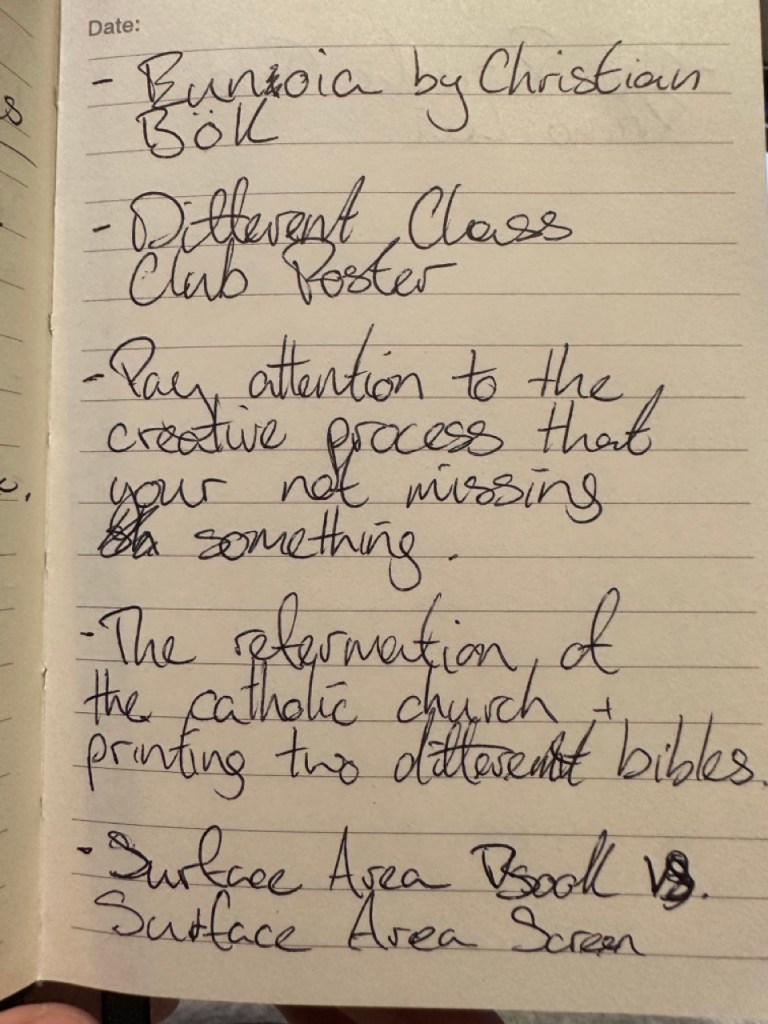 Date:
- Eunoia by Christian
BöK
- Different Class
Club Poster
- Pay attention to the
creative process that
your not missing
something.
- The reformation of
the catholic church +
printing two different bibles.
- Surface Area Book vs.
Surface Area Screen